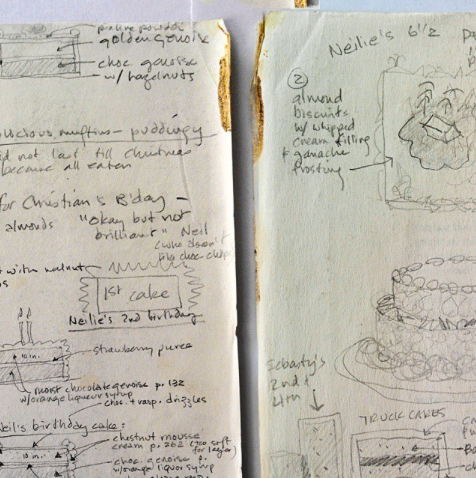 praline powder
golden genoise
choc genoise
w/ hazelnuts
muffins - puddingy
not last till Christmas
because all eaten
for Christian's B'day -
almonds
"Okay but not
brilliant" Neil
(who doesn't
like choc
with walnut
1st cake
Neilie's 2nd birthday
10 in.
strawberry puree
moist chocolate genoise p. 132
w/orange liqueur syrup
choc. + rasp. drizzles
Neil's birthday cake:
chestnut mousse
cream p. 262 (too soft
for layer)
10 in.
choc. genoise p.
w/orange liquor syrup
Neilie's 6 1/2
2
almond
biscuits
w/ whipped
cream filling
+ ganache
frosting
Sebasty's
2nd +
4th
TRUCK CAKES